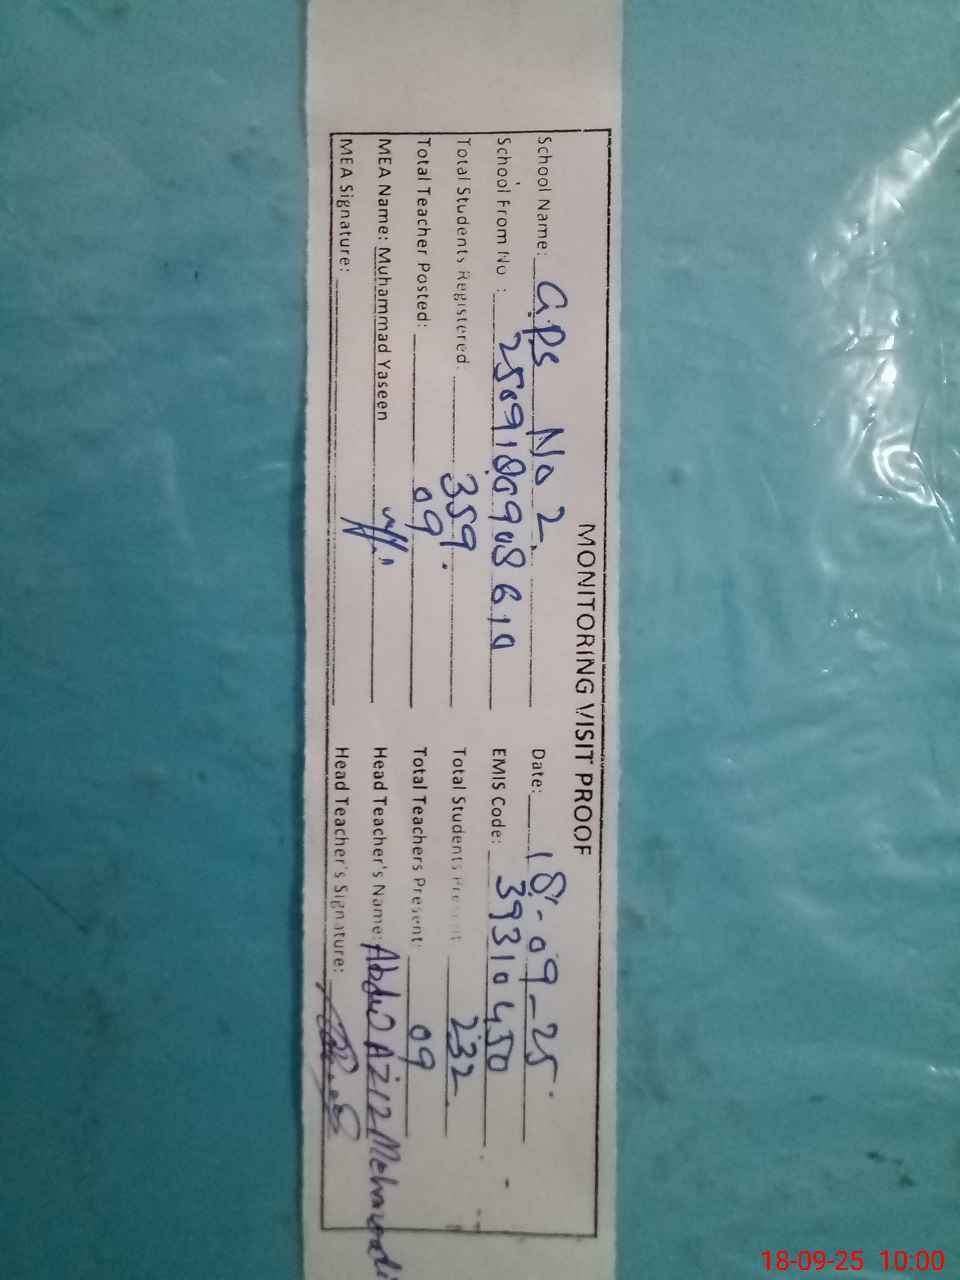 MONITORING VISIT PROOF
School Name: GPS No 2. Date: 18-09-25.
School From No : EMIS Code: 39310450
Total Students Registered: 359. Total Students Present: 232
Total Teacher Posted: 09 Total Teachers Present: 09
MEA Name: Muhammad Yaseen Head Teacher's Name: Abdul Aziz
MEA Signature: Head Teacher's Signature:
18-09-25 10:00